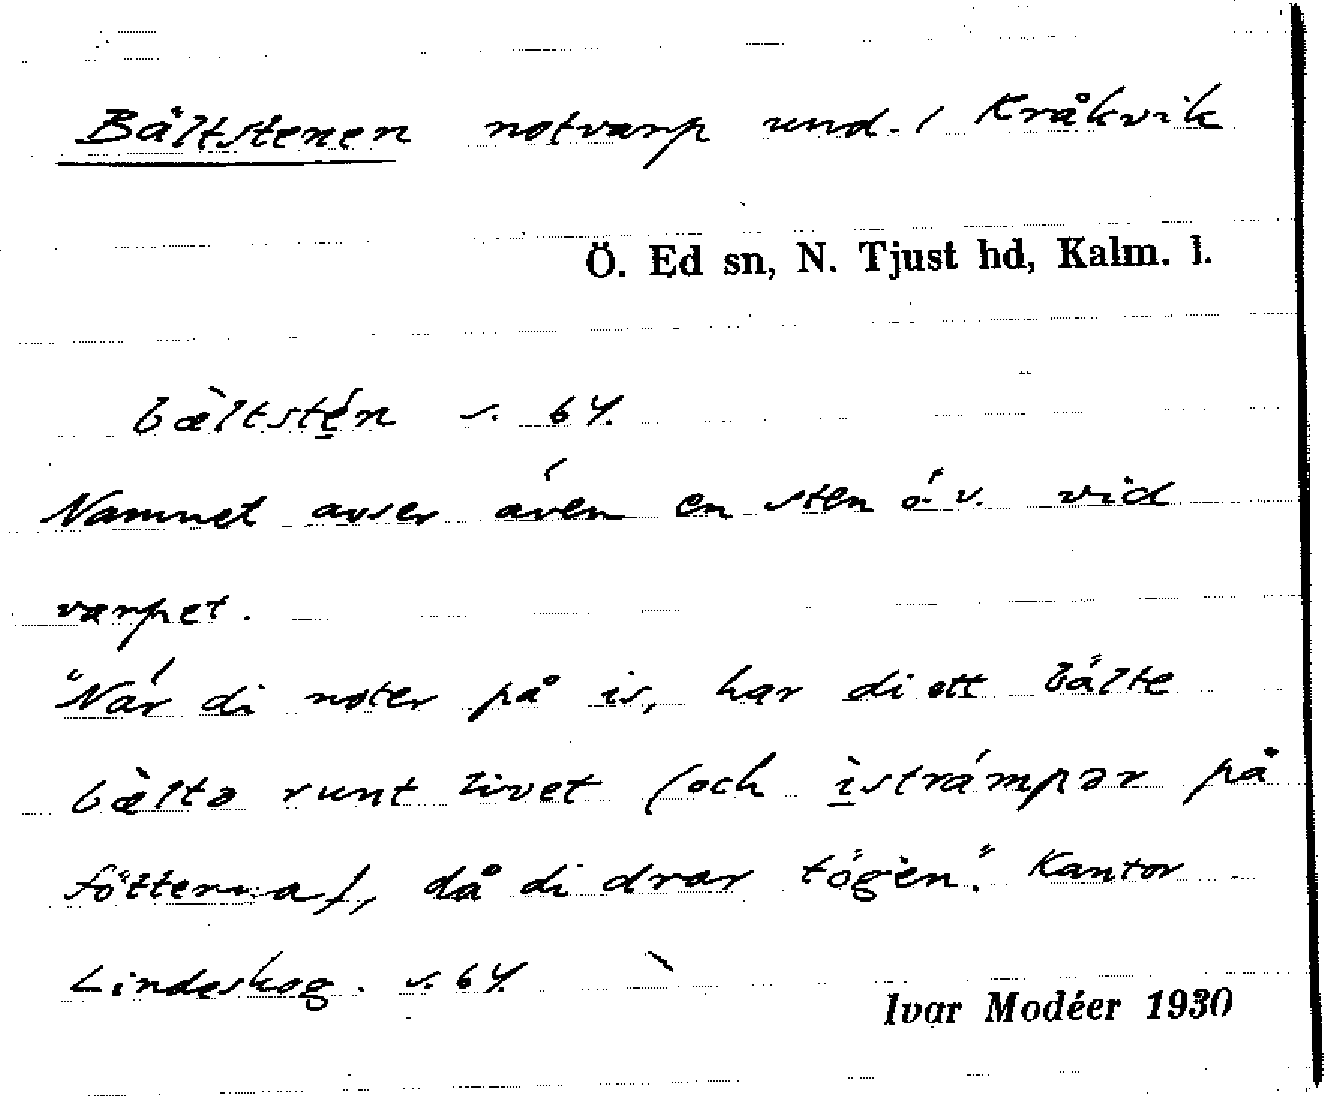 Bältstenen notvarp und. / Kråkvik
Ö. Ed sn, N. Tjust hd, Kalm. l.
bæ̀ltstén s. 64.
Namnet avser även en sten ö. v. vid
varpet.
"När di noter på is, har di ett bälte
bæ̀ltə runt livet (och ìstrámpər på
fötterna), då di drar tögèn." Kantor
Lindeskog. s. 64.
Ivar Modéer 1930